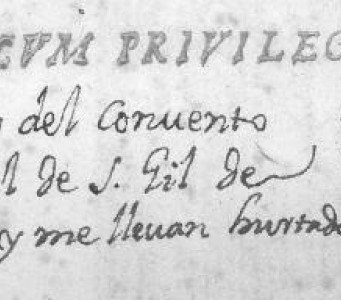 CVM PRIVILEG
del Conuento
l de S. Gil de
y me lleuan hurtado